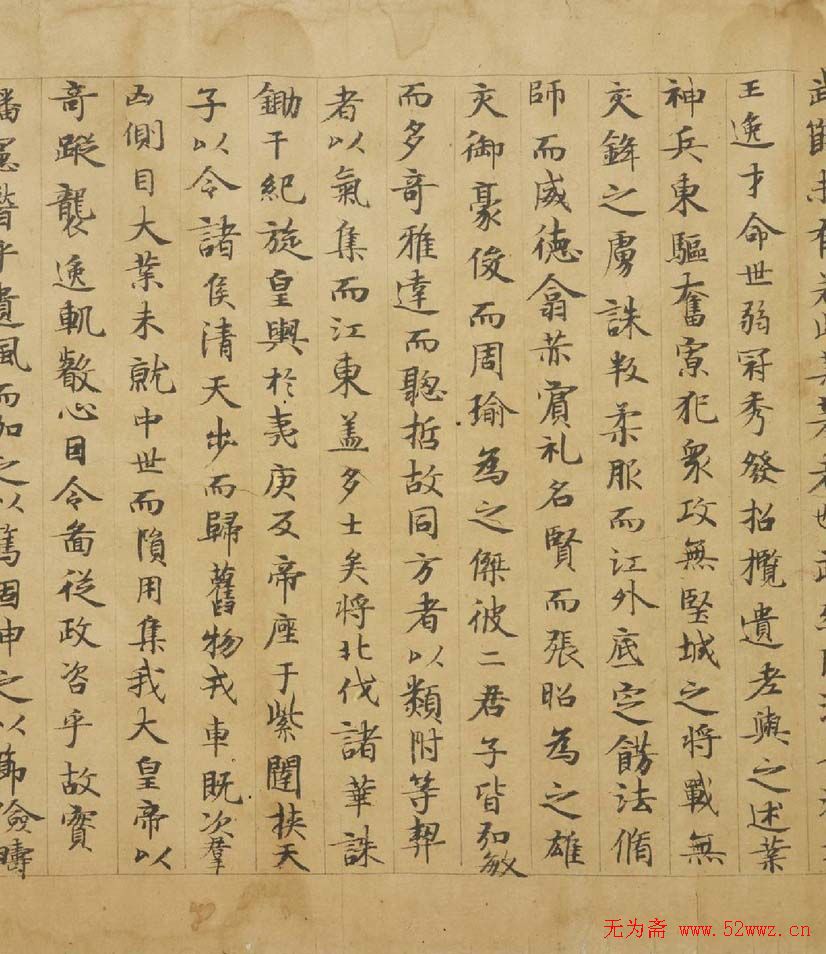 節未有若此其著者世武
王逸才命世弱冠秀發招攬遺老與之述業
神兵東驅奮寮犯眾攻無堅城之將戰無
交鋒之虜誅叛柔服而江外底定餝法脩
師而威德翕赫賓礼名賢而張昭為之雄
交御豪俊而周瑜為之傑彼二君子皆弘敏
而多奇雅達而聰哲故同方者以類附等契
者以氣集而江東蓋多士矣將北伐諸華誅
鋤干紀旋皇輿於夷庚反帝座于紫闥挾天
子以令諸侯清天步而歸舊物戎車既次羣
凶側目大業未就中世而隕用集我大皇帝以
奇蹤襲逸軌叡心因令啚從政咨乎故實
播憲稽乎遺風而加之以篤固申之以節儉疇
无为斋 www.52wwz.cn